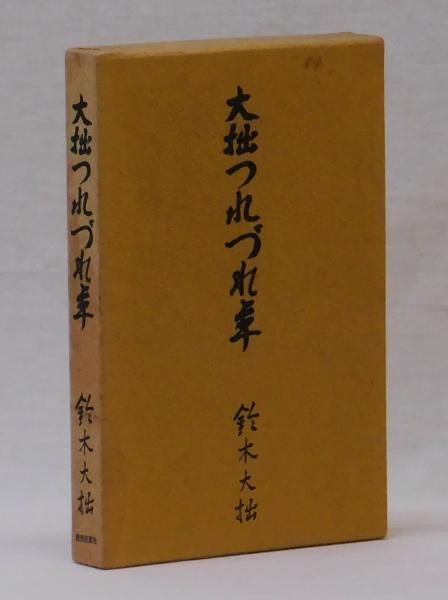 大拙つれづれ草
鈴木大拙
大拙つれづれ草
鈴木大拙